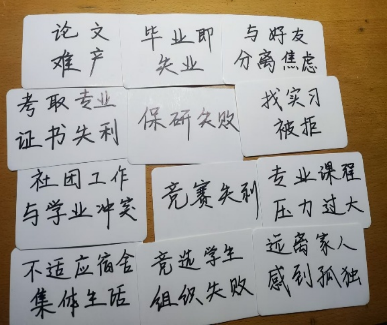 论文
难产
毕业即
失业
与好友
分离焦虑
考取专业
证书失利
保研失败
找实习
被拒
社团工作
与学业冲突
竞赛失利
专业课程
压力过大
不适应宿舍
集体生活
竞选学生
组织失败
远离家人
感到孤独